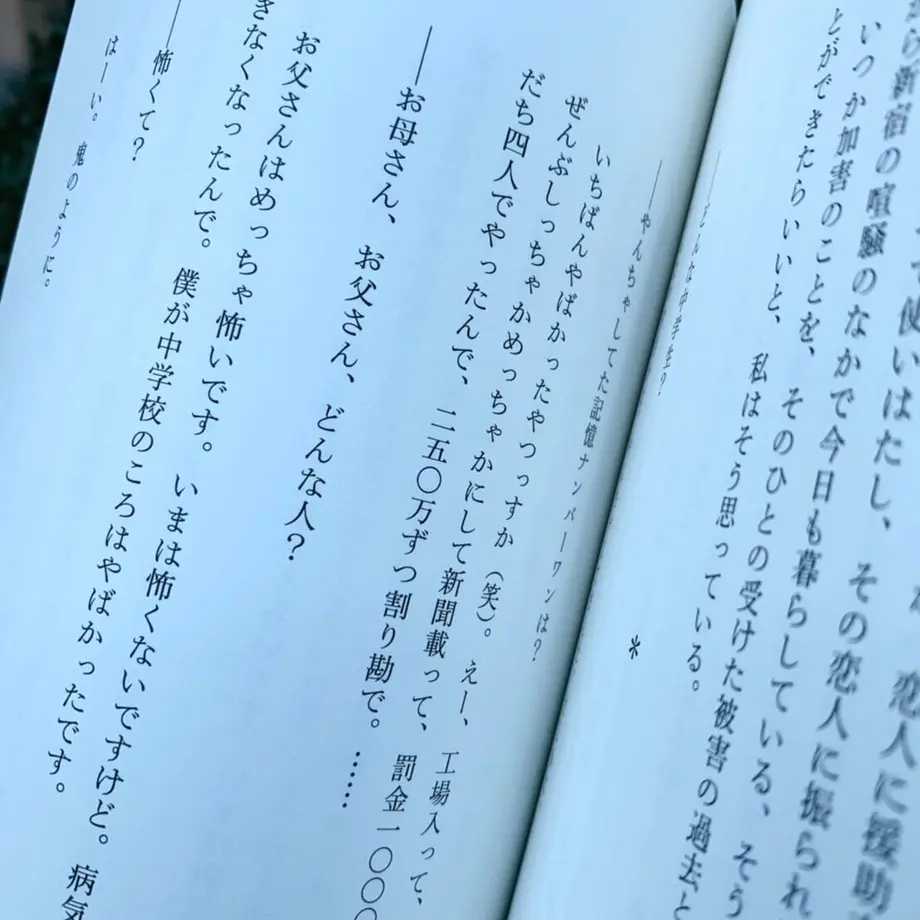 恋人に援助
て使いはたし、その恋人に振られ
ら新宿の喧騒のなかで今日も暮らしている、そう
いつか加害のことを、そのひとの受けた被害の過去と
とができたらいいと、私はそう思っている。
＊
――どんな中学生？
――やんちゃしてた記憶ナンバーワンは？
いちばんやばかったやつっすか（笑）。えー、工場入って、
ぜんぶしっちゃかめっちゃかにして新聞載って、罰金一〇〇〇
だち四人でやったんで、二五〇万ずつ割り勘で。……
――お母さん、お父さん、どんな人？
お父さんはめっちゃ怖いです。いまは怖くないですけど。病気
きなくなったんで。僕が中学校のころはやばかったです。
――怖くて？
はーい。鬼のように。